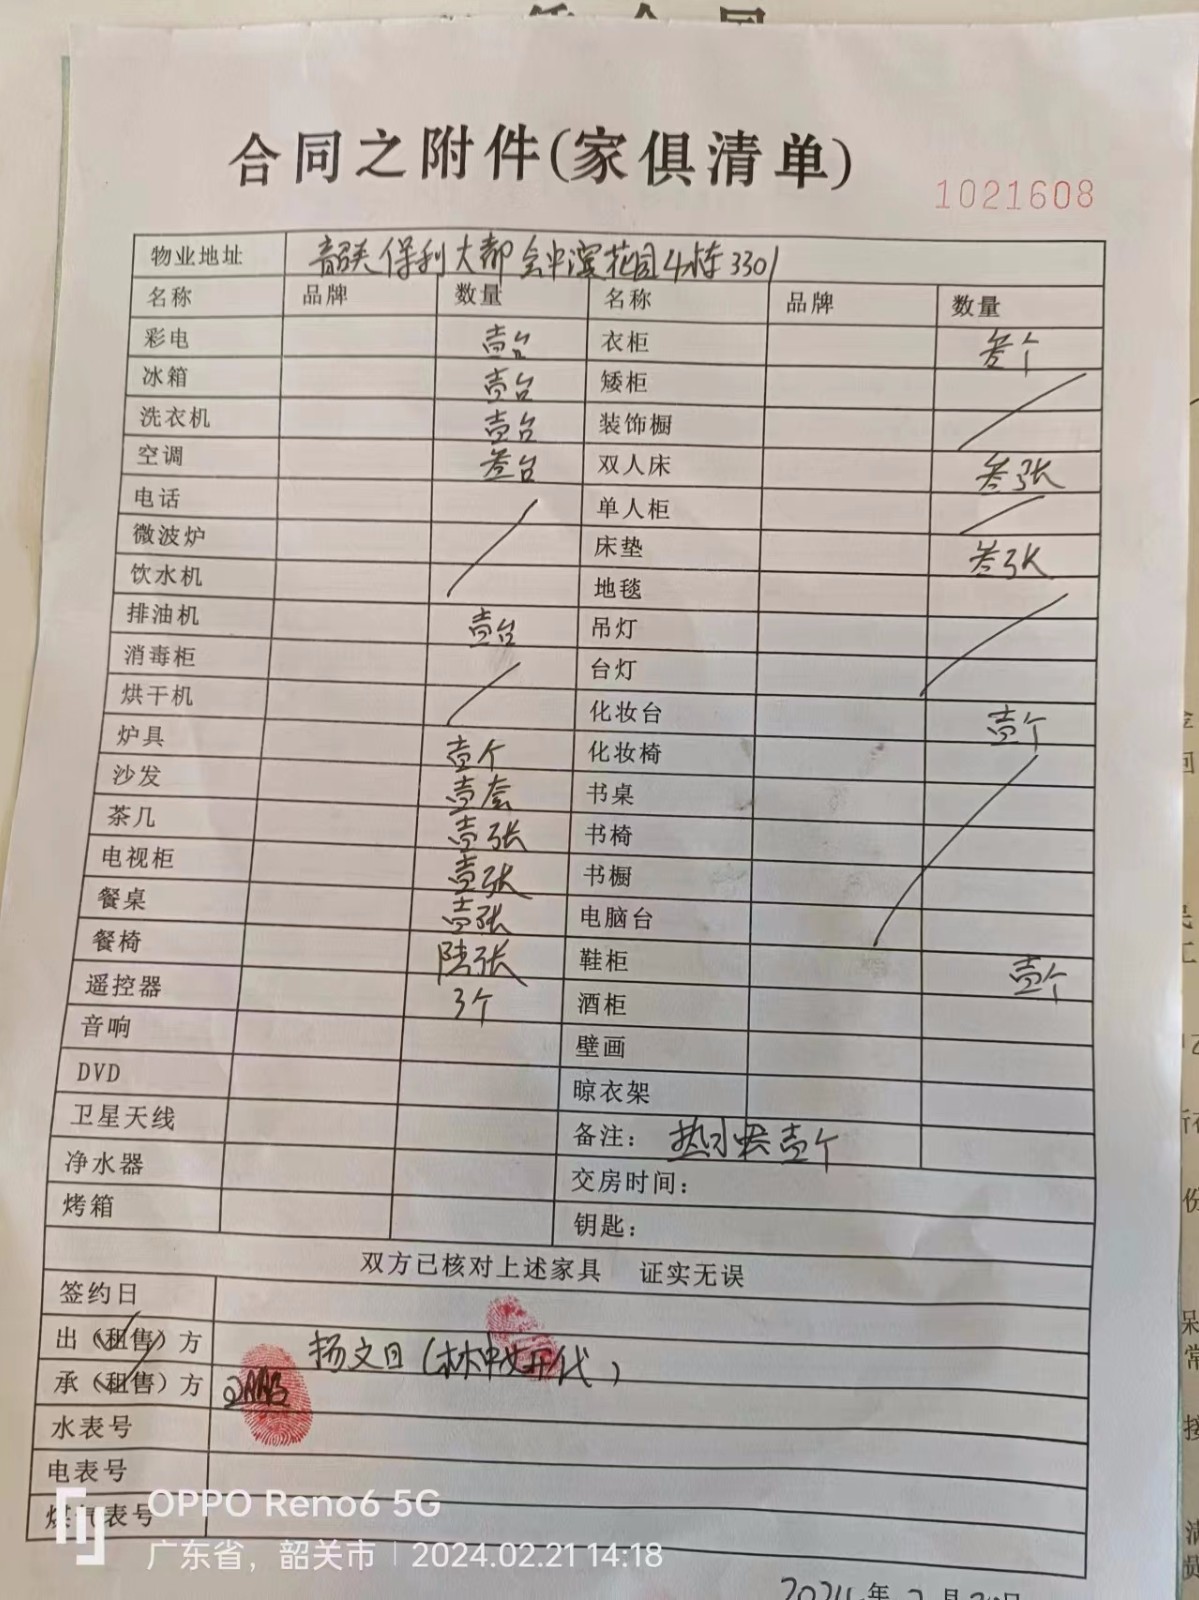 合同之附件(家俱清单)
1021608
物业地址 韶关保利大都会中滨花园4栋3301
名称 品牌 数量 名称 品牌 数量
彩电 壹台 衣柜 叁个
冰箱 壹台 矮柜
洗衣机 壹台 装饰橱
空调 叁台 双人床 叁张
电话 单人柜
微波炉 床垫 叁张
饮水机 地毯
排油机 壹台 吊灯
消毒柜 台灯
烘干机 化妆台 壹个
炉具 壹个 化妆椅
沙发 壹套 书桌
茶几 壹张 书椅
电视柜 壹张 书橱
餐桌 壹张 电脑台
餐椅 陆张 鞋柜 壹个
遥控器 3个 酒柜
音响 壁画
DVD 晾衣架
卫星天线 备注: 热水器壹个
净水器 交房时间:
烤箱 钥匙:
双方已核对上述家具 证实无误
签约日
出(租售)方 杨文日(林中 代)
承(租售)方
水表号
电表号
煤气表号
OPPO Reno6 5G
广东省，韶关市 | 2024.02.21 14:18
2024年2月 日